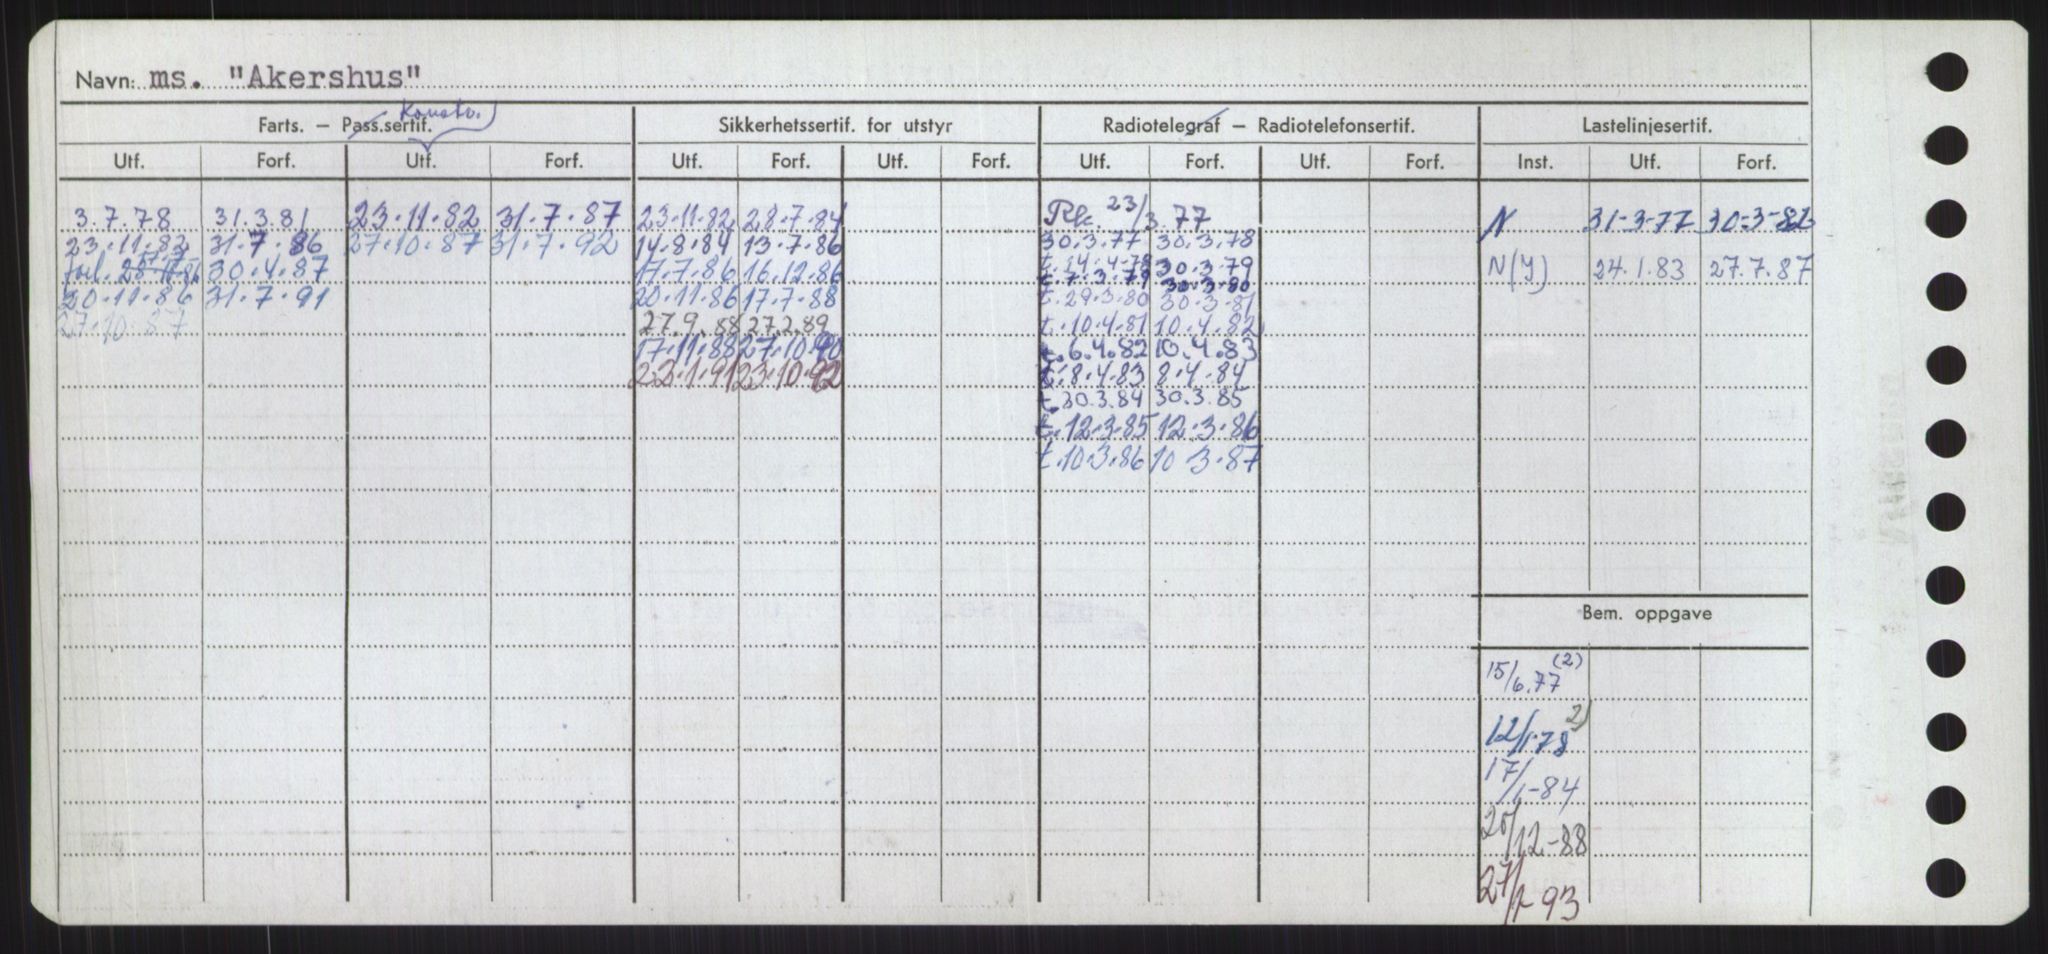 Navn: ms. "Akershus"
Farts. – Pass.sertif. Konstr. Sikkerhetssertif. for utstyr Radiotelegraf – Radiotelefonsertif. Lastelinjesertif.
Utf. Forf. Utf. Forf. Utf. Forf. Utf. Forf. Utf. Forf. Utf. Forf. Inst. Utf. Forf.
3.7.78 31.3.81 23.11.82 31.7.87 23.11.82 28.7.84 23/3.77 N 31-3-77 30-3-82
23.11.82 31.7.86 27.10.87 31.7.92 14.8.84 13.7.86 30.3.77 30.3.78
forl. 30.4.87 17.7.86 16.12.86 t.14.4.78 30.3.79 N(Y) 24.1.83 27.7.87
t.7.3.79 30.3.80
20.11.86 31.7.91 20.11.86 17.7.88 t.29.3.80 30.3.81
27.10.87 27.9.88 27.2.89 t.10.4.81 10.4.82
17.11.88 27.10.90 t.6.4.82 10.4.83
23.1.91 23.10.92 t.8.4.83 8.4.84
t.30.3.84 30.3.85
t.12.3.85 12.3.86
t.10.3.86 10 3.87
Bem. oppgave
15/6.77 (2)
12/1.78 2)
17/1-84
20/12-88
27/1-93